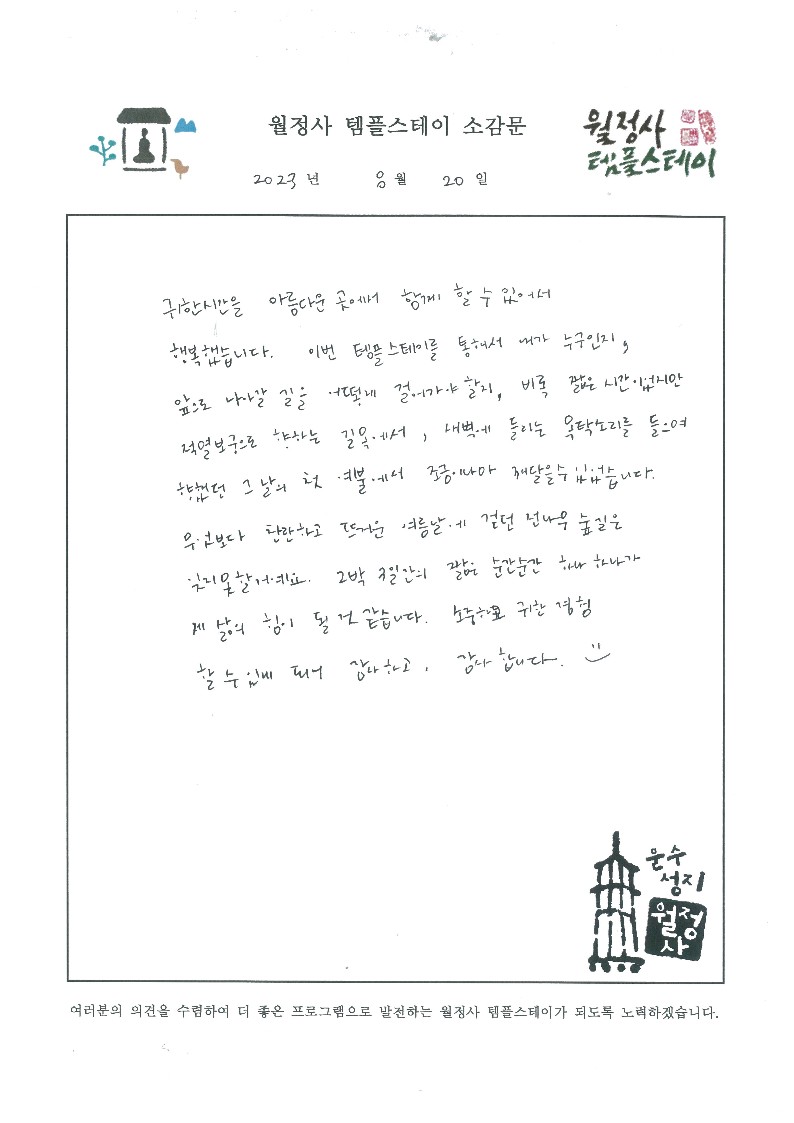 월정사 템플스테이 소감문
월정사
템플스테이
2023 년 8 월 20 일
귀한시간을 아름다운 곳에서 함께 할 수 있어서
행복했습니다. 이번 템플스테이를 통해서 내가 누구인지,
앞으로 나아갈 길을 어떻게 걸어가야 할지, 비록 짧은 시간이었지만
적멸보궁으로 향하는 길목에서, 새벽에 들리는 목탁소리를 들으며
향했던 그 날의 첫 예불에서 조금이나마 깨달을수 있었습니다.
무엇보다 찬란하고 뜨거운 여름날에 걷던 전나무 숲길은
잊지못할거예요. 2박 3일간의 짧은 순간순간 하나 하나가
제 삶의 힘이 될 것 같습니다. 소중하고 귀한 경험
할 수 있게 되어 감사하고, 감사 합니다.
운수
성지
월정
사
여러분의 의견을 수렴하여 더 좋은 프로그램으로 발전하는 월정사 템플스테이가 되도록 노력하겠습니다.